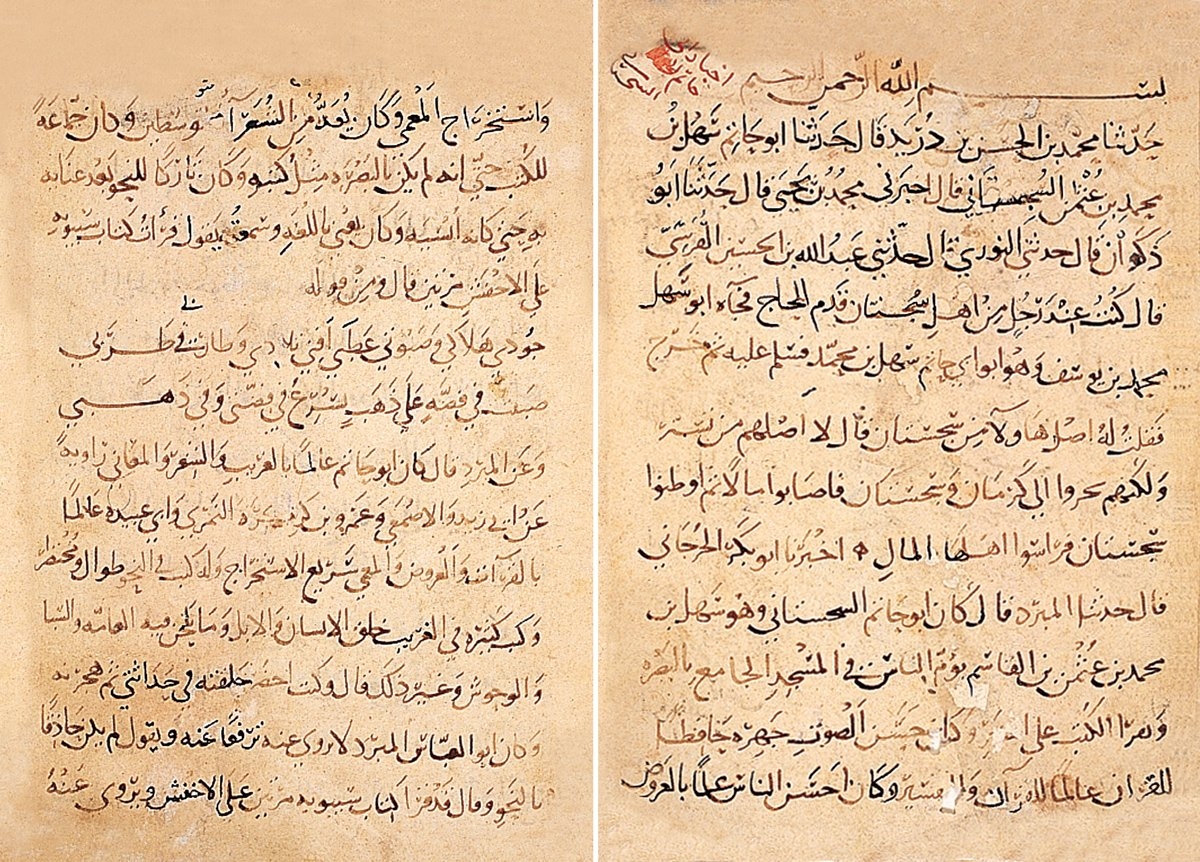 بسم الله الرحمن الرحيم
حدثنا محمد بن الحسن بن دريد قال حدثنا ابو حاتم سهل بن
محمد بن عثمن السجستاني قال اخبرني محمد بن يحيى قال حدثنا ابو
ذكوان قال حدثني التوزي قال حدثني عبد الله بن الحسين القرشي
قال كنت عند رجل من اهل سجستان قدم للحاج فجآه ابو سهل
محمد بن يوسف وهو ابو ابي حاتم سهل بن محمد فسلم عليه ثم خرج
فقلت له اصل هاولآ من سجستان قال لا اصلهم من تستر
ولكنهم تجروا الى كرمان وسجستان فاصابوا مالا ثم اوطنوا
سجستان فراسوا اهلها بالمال اخبرنا ابو بكر الجرجاني
قال حدثنا المبرد قال كان ابو حاتم السجستاني وهو سهل بن
محمد بن عثمن بن القاسم يؤم الناس في المسجد الجامع بالبصره
ويقرا الكتب على المنبر وكان حسن الصوت جهيره حافظا
للقران عالما بالقرآن والتفسير وكان احسن الناس علما بالعروض
واستخراج المعمى وكان يعد من الشعرآ المتوسطين وكان جماعة
للكتب حتى انه لم يكن بالبصره مثل كتبه وكان تاركا للنحو بعد عنايته
به حتى كانه انسيه وكان يعنى باللغه وسمعته يقول قرات كتاب سيبويه
على الاخفش مرتين قال ومن قوله
وعن المبرد قال كان ابو حاتم عالما بالغريب والشعر والمعاني راوية
عن ابي زيد والاصمعي وعمرو بن كركره النميري وابي عبيده عالما
بالقرآآت والعروض والمعمى سريع الاستخراج وله كتب في النحو طوال ومختصر
وكتب كثيره في الغريب خلق الانسان والابل وما يلحن فيه العامه والنبا
والوحوش وغير ذلك قال وكنت احضر حلقته في حداثتي ثم هجرته
وكان ابو العباس المبرد لا يروي عنه ترفعا عنه ويقول لم يكن حاذقا
بالنحو وقال قد قرا كتاب سيبويه مرتين على الاخفش ويروي عنه